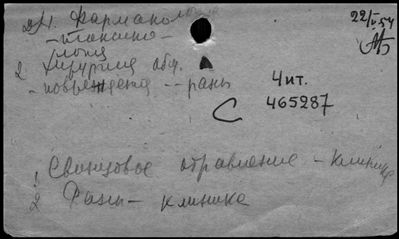 Фармаколо
22/V-54
- токсико -
логия
2 Хирургия общ.
- повреждения - - раны
Чит.
С 465287
1 Свинцовое отравление - клиника
2 Раны - клиника